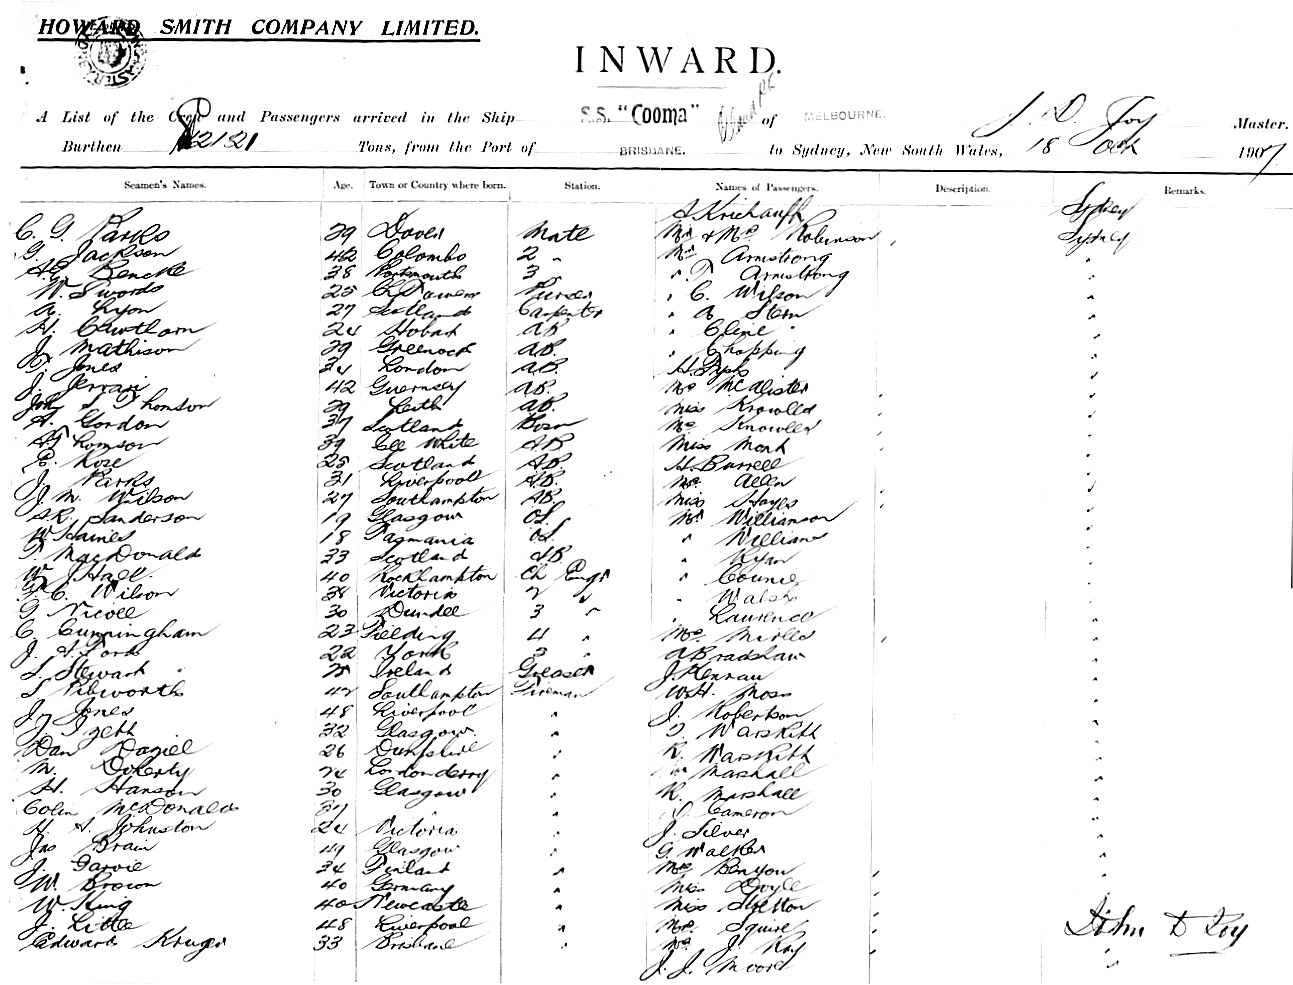 HOWARD SMITH COMPANY LIMITED.
INWARD.
A List of the Crew and Passengers arrived in the Ship S.S. "Cooma" of MELBOURNE. J. D. Foy Master.
Burthen 2121 Tons, from the Port of BRISBANE. to Sydney, New South Wales, 18 1907
Seamen's Names. Age. Town or Country where born. Station. Names of Passengers. Description. Remarks.
A Krichauff Sydney
C. G. Parks 39 Dover Mate Mr & Mrs Robinson Sydney
G. Jackson 42 Colombo 2 " Mr Armstrong "
Bencke 38 Portsmouth 3 " " T Armstrong "
W. Swords 25 Purser " C. Wilson "
A. Lyon 27 Scotland Carpenter " A Stern "
H. Cawthorn 24 Hobart AB " Clene "
J. Mathison 39 Greenock AB. " Chopping "
Jones London AB. H. "
J. Jerrari 42 Guernsey AB. Mrs McAlister "
S Thomson 39 Leith AB. Miss Knowles "
A. Gordon 37 Scotland Bosn Mrs Knowles "
Thomson 39 White AB Miss Monk "
E. Rose 25 Scotland AB. H. Burrell "
J. Parks 31 Liverpool AB. Mrs Allen "
J. M. Wilson 27 Southampton AB. Miss Hayes "
Sanderson 19 Glasgow OS. Mr Williamson "
W James 18 Tasmania OS " Williams "
MacDonald 33 Scotland AB " Ryan "
W. J Hall. 40 Rockhampton Ch Engr " "
C. Wilson 38 Victoria 2 " " Walsh "
G Nicoll 30 Dundee 3 " " Laurence "
C. Cunningham 23 Fielding 4 " Mrs Mirlls "
J. Ford 22 York 3 " A Bradshaw "
S. Stewart Ireland Greaser J. Kennau "
S Pibworth 42 Southampton Fireman W. H. Moss "
J. Jones 48 Liverpool " J. Robertson "
J. Izett 32 Glasgow. " Warskitt "
Dan Daziel 26 " R. Warskitt "
M. Doherty Londonderry " Marshall "
H. Hanson 30 Glasgow " R. Marshall "
Colin McDonald 37 " " Cameron "
H. A. Johnston 24 Victoria " J. Silver "
Jas Brain 49 Glasgow " G. Walker "
J. Garvie 34 Finland " Mrs Benyon "
W. Brown 40 Germany " Miss Doyle "
W. King 40 Newcastle " Miss Skelton "
J. Little 48 Liverpool " Mrs Squire John D Foy
Edward Kruger 33 Brisbane " Mrs J. Ray "
J. J. Moore "